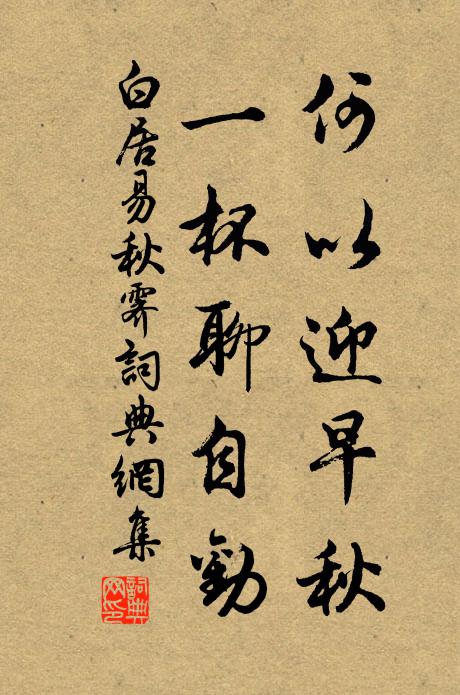 何以迎早秋
一杯聊自勸
白居易秋霽詞典網集
詞典网印